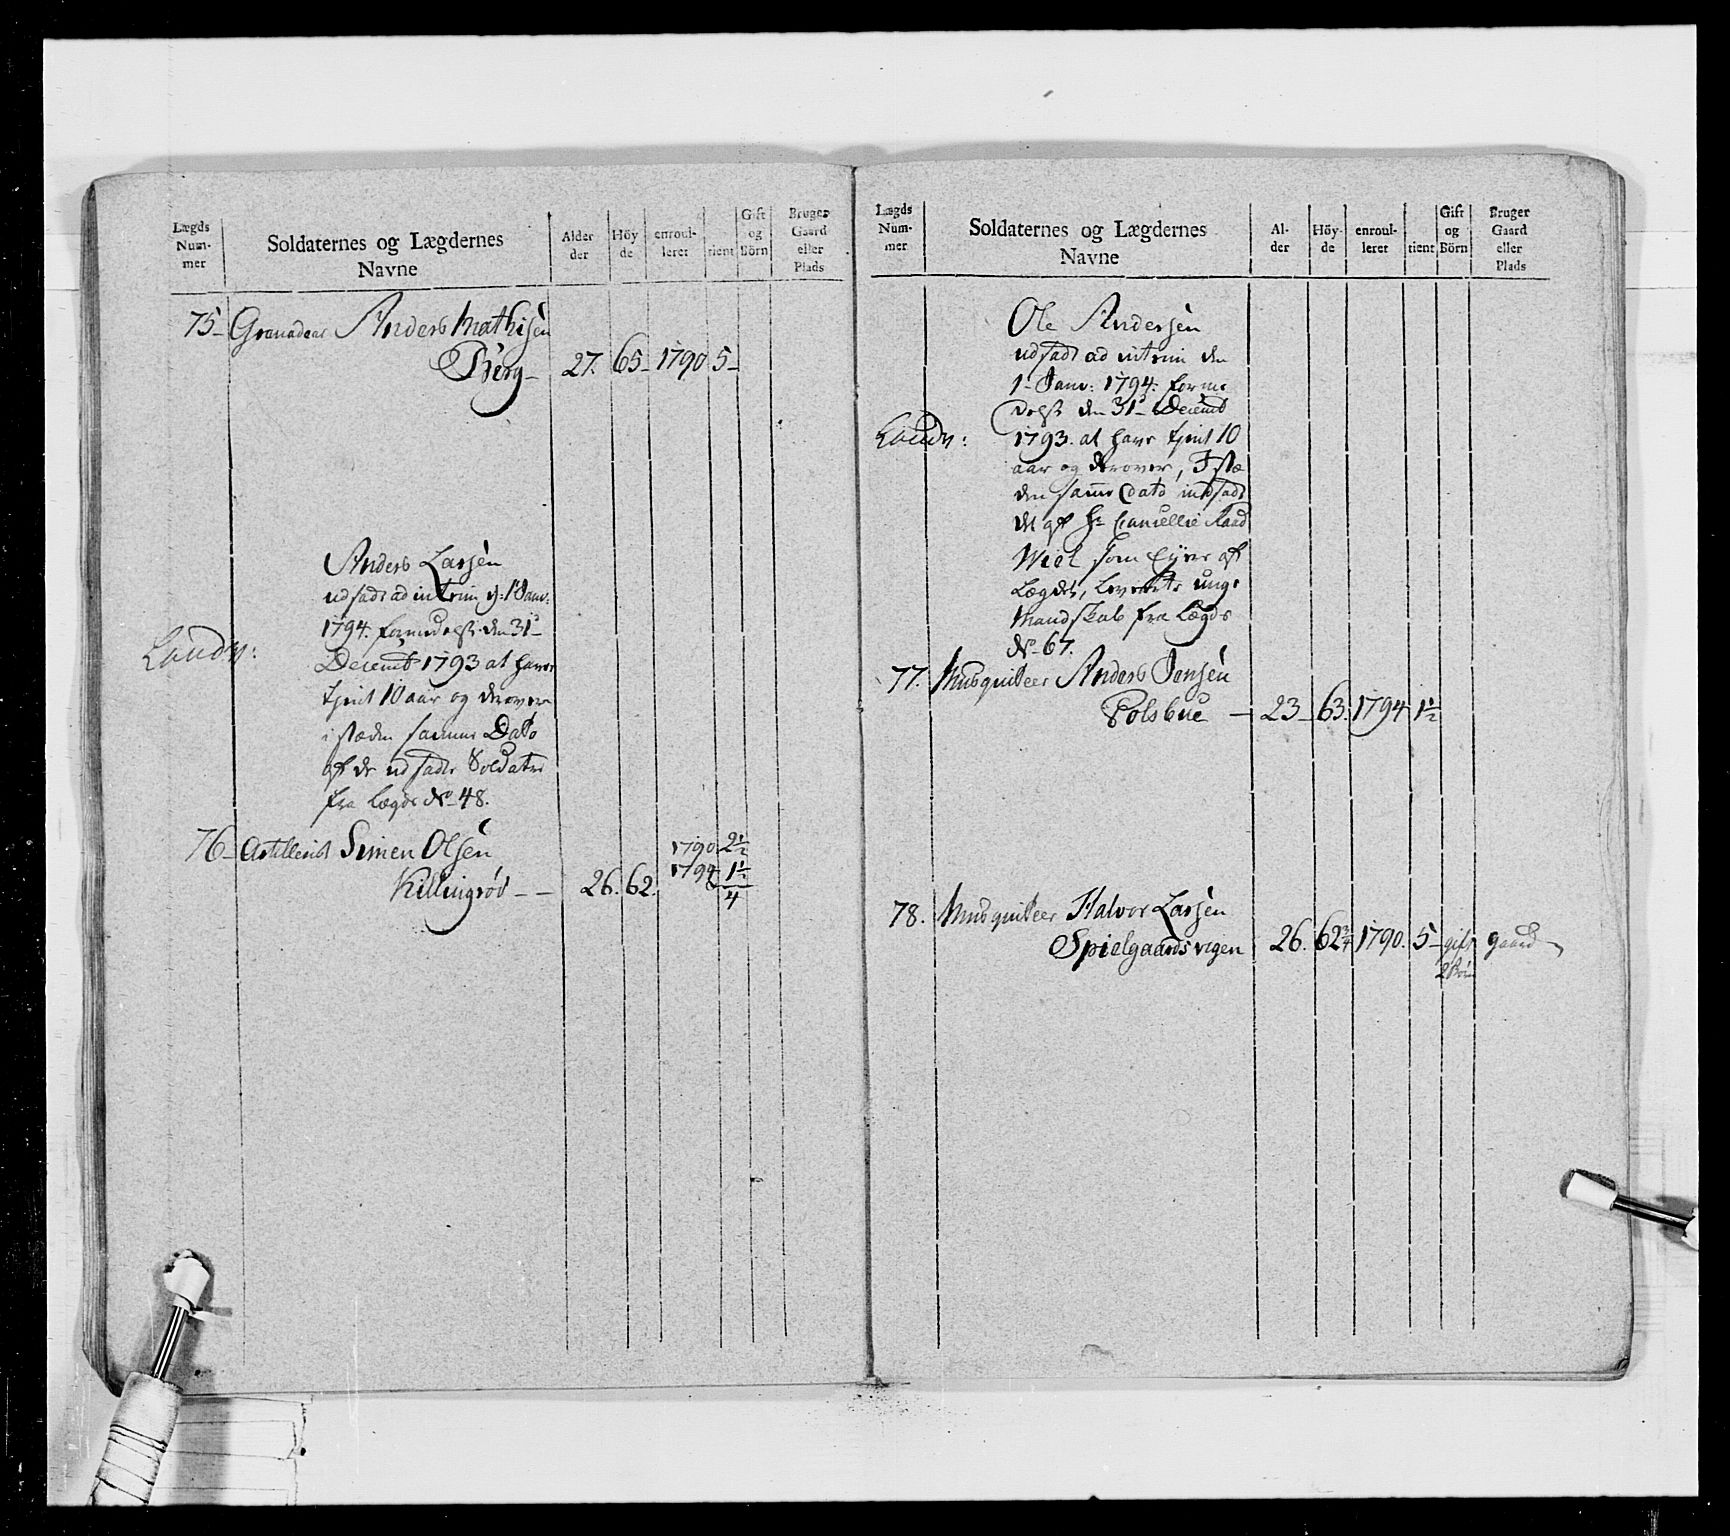 Lægds Num- mer
Soldaternes og Lægdernes Navne
Alder der
Höy de
enroul- leret
tient
Gift og Börn
Bruger Gaard eller Plads
75- Granadeer Anders Mathisen
Berg- 27. 65- 1790 5-
Anders Larsen
udsadt ad interim d: 1 Janv:
1794. formedelst den 31-
Decemb 1793 at have
tjent 10 aar og derover
i stæden samme Dato
af de udsadte Soldater
fra Lægde No 48.
Landv:
76- Artillerist Simen Olsen 1790 2½
Killingröd - - 26. 62. 1794 1½
4
Lægds Num- mer
Soldaternes og Lægdernes Navne
Al- der
Höy- de
enroul- leret
tient
Gift og Börn
Bruger Gaard eller Plads
Ole Andersen
udsadt ad interim den
1- Janv: 1794. forme
delst den 31- Decemb
Landv: 1793. at have tjent 10
aar og derover, I stæ
den samme Dato indsadt
det af Hr Cancellie Raad
Wiel som Ejer af
Lægdet, leverte unge
Mandskab fra Lægde
No 67.
77. Musqueteer Anders Jensen
Polsbue - 23- 63. 1794 1½
78. Musqueteer Halvor Larsen
Spielgaardsvigen 26. 62¾ 1790. 5- gift gaard
2 Börn